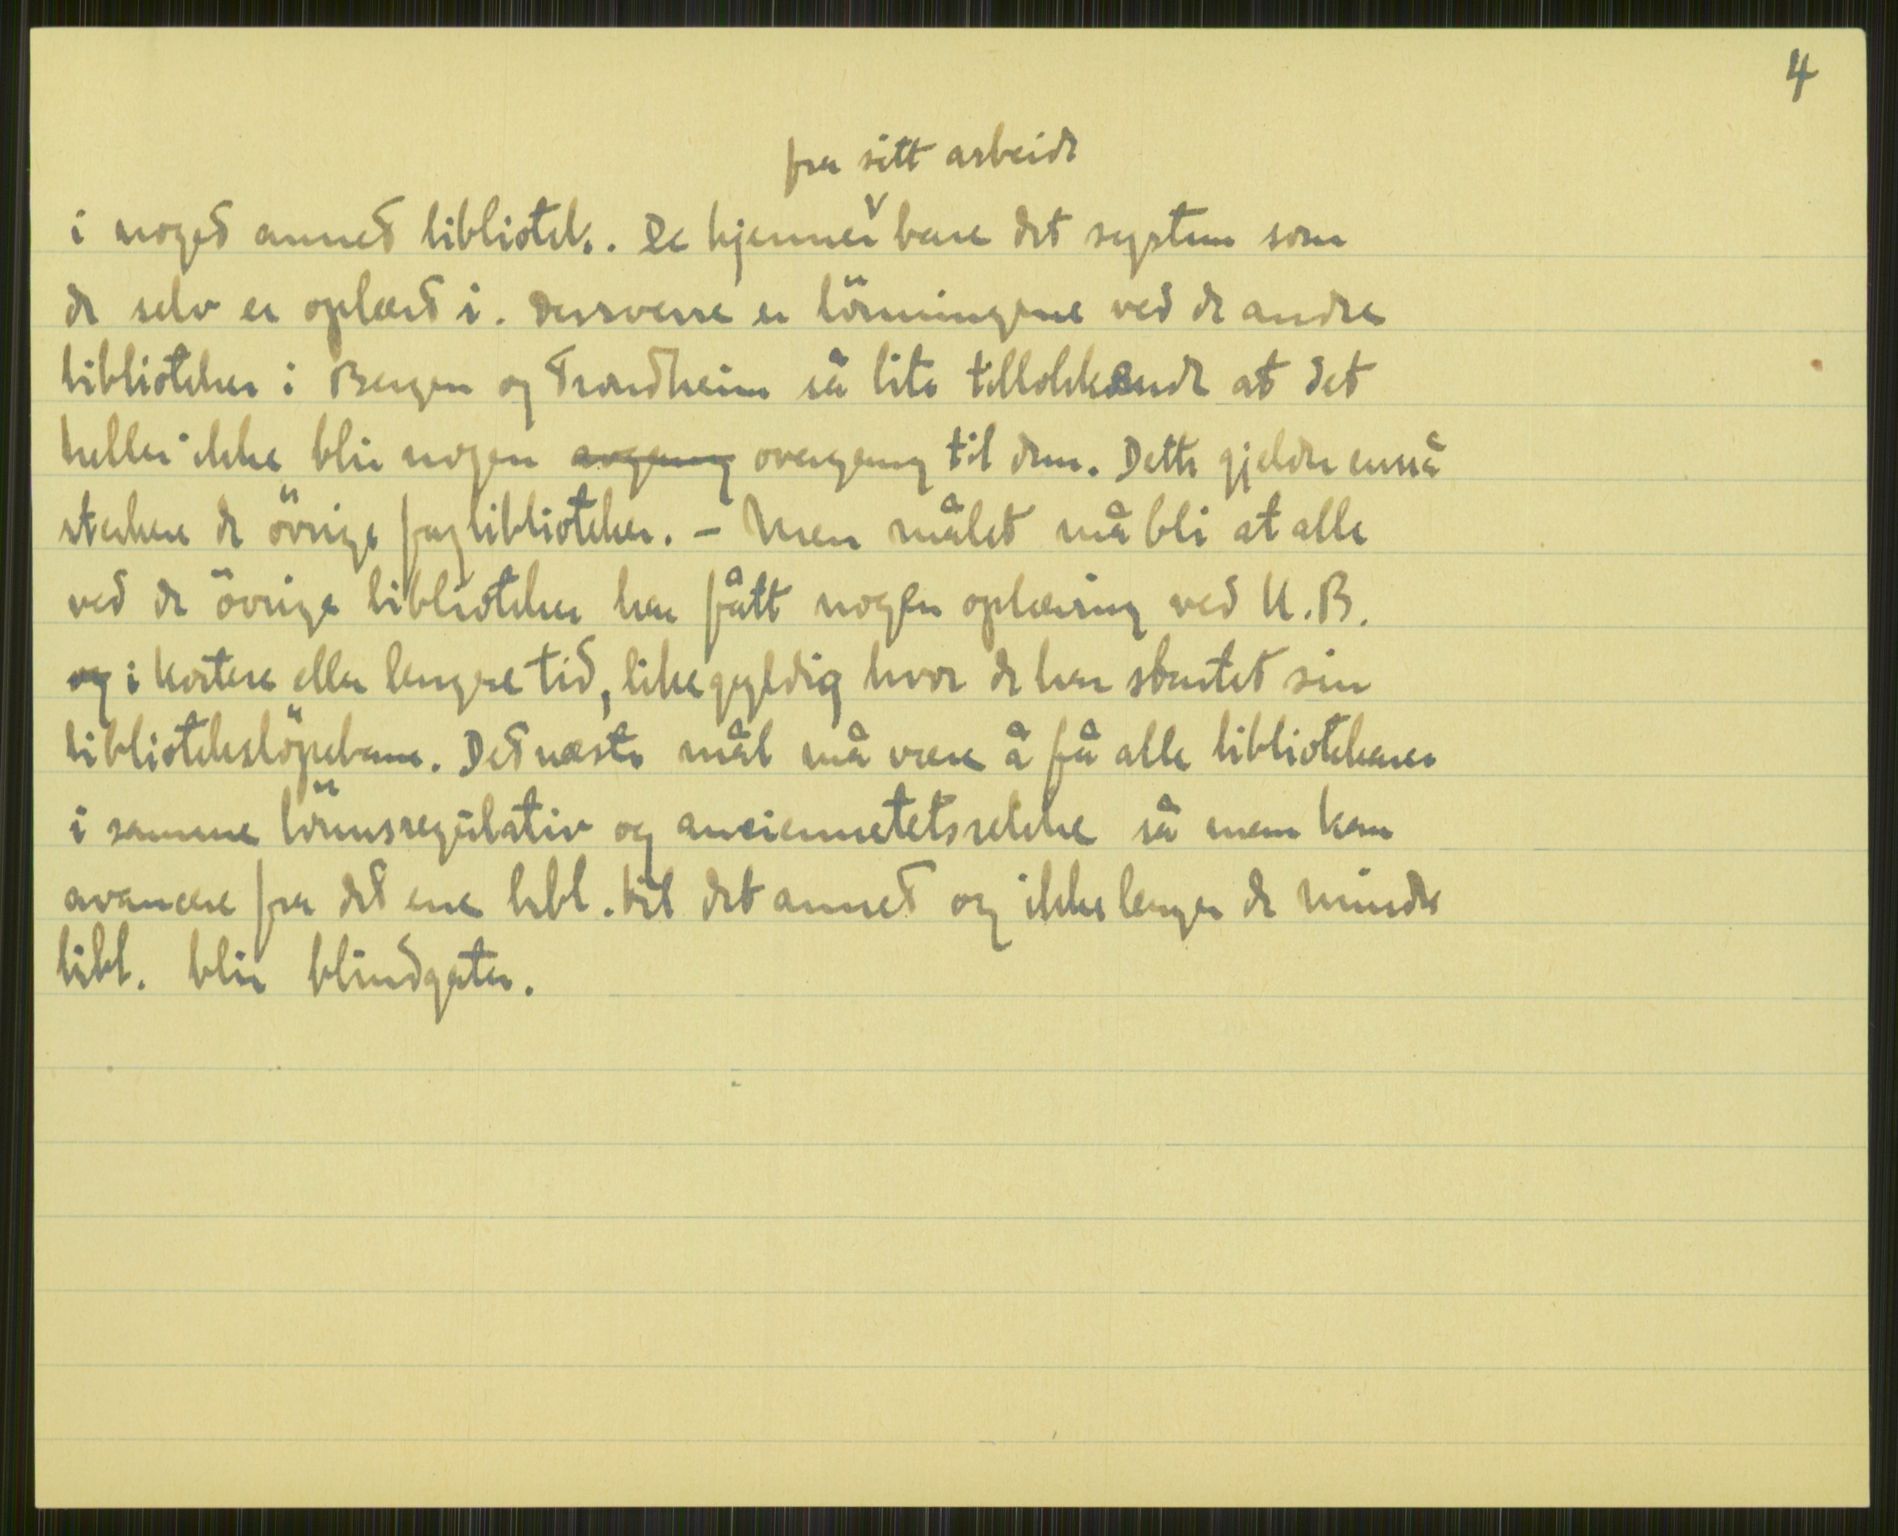 4
fra sitt arbeide
i noget annet bibliotek. De kjenner bare det system som
de selv er oplært i. Dessverre er lönningene ved de andre
biblioteker i Bergen og Trondheim så lite tillokkende at det
heller ikke blir nogen avgang overgang til dem. Dette gjelder ennå
sterkere de övrige fagbiblioteker. – Men målet må bli at alle
ved de övrige biblioteker har fått nogen oplæring ved U.B.
og i kortere eller lengere tid, likegyldig hvor de har startet sin
biblioteksløpebane. Det næste mål må være å få alle bibliotekarer
i samme lönnsregulativ og anciennetetsrekke så man kan
avancere fra det ene bibl. til det annet og ikke lenger de mindre
bibl. blir blindgater.